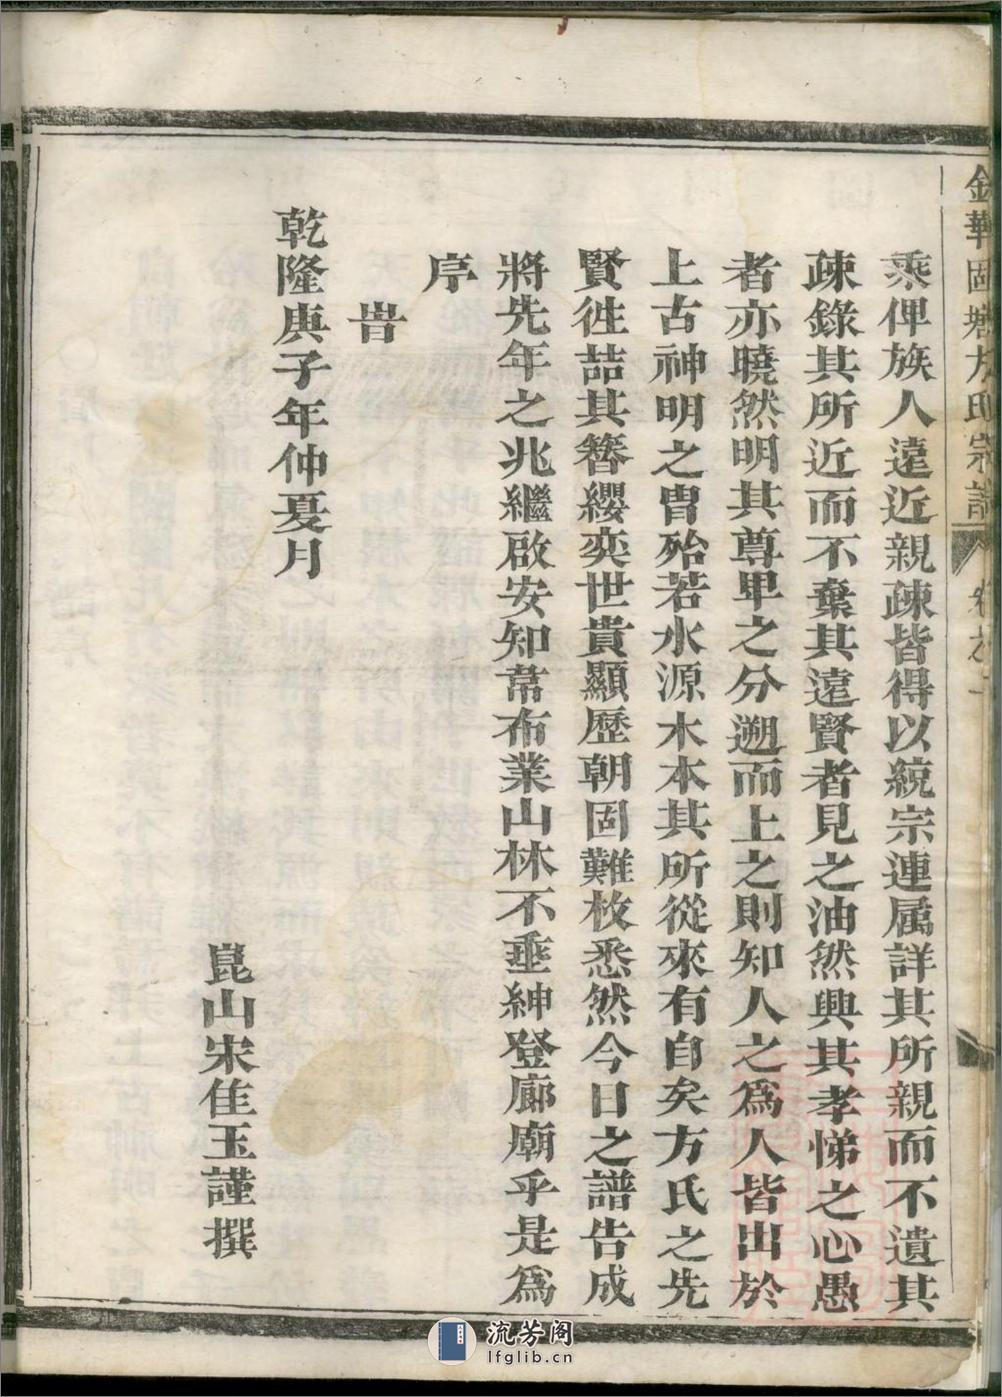 金華固塘方氏宗譜 卷之一
乘俾族人遠近親疎皆得以統宗連属詳其所親而不遺其
疎錄其所近而不棄其遠賢者見之油然興其孝悌之心愚
者亦曉然明其尊卑之分遡而上之則知人之為人皆出於
上古神明之胄殆若水源木本其所從來有自矣方氏之先
賢徃喆其簪纓奕世貴顯歷朝固難枚悉然今日之譜告成
將先年之兆繼啟安知韋布業山林不垂紳登廊廟乎是為
序
旹
乾隆庚子年仲夏月
崑山宋佳玉謹撰
流芳阁
lfglib.cn